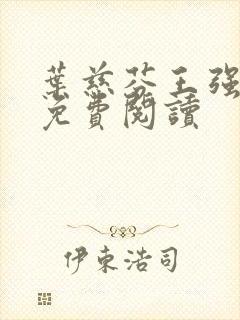 葉慈芬王強
免費閱讀
伊東浩司